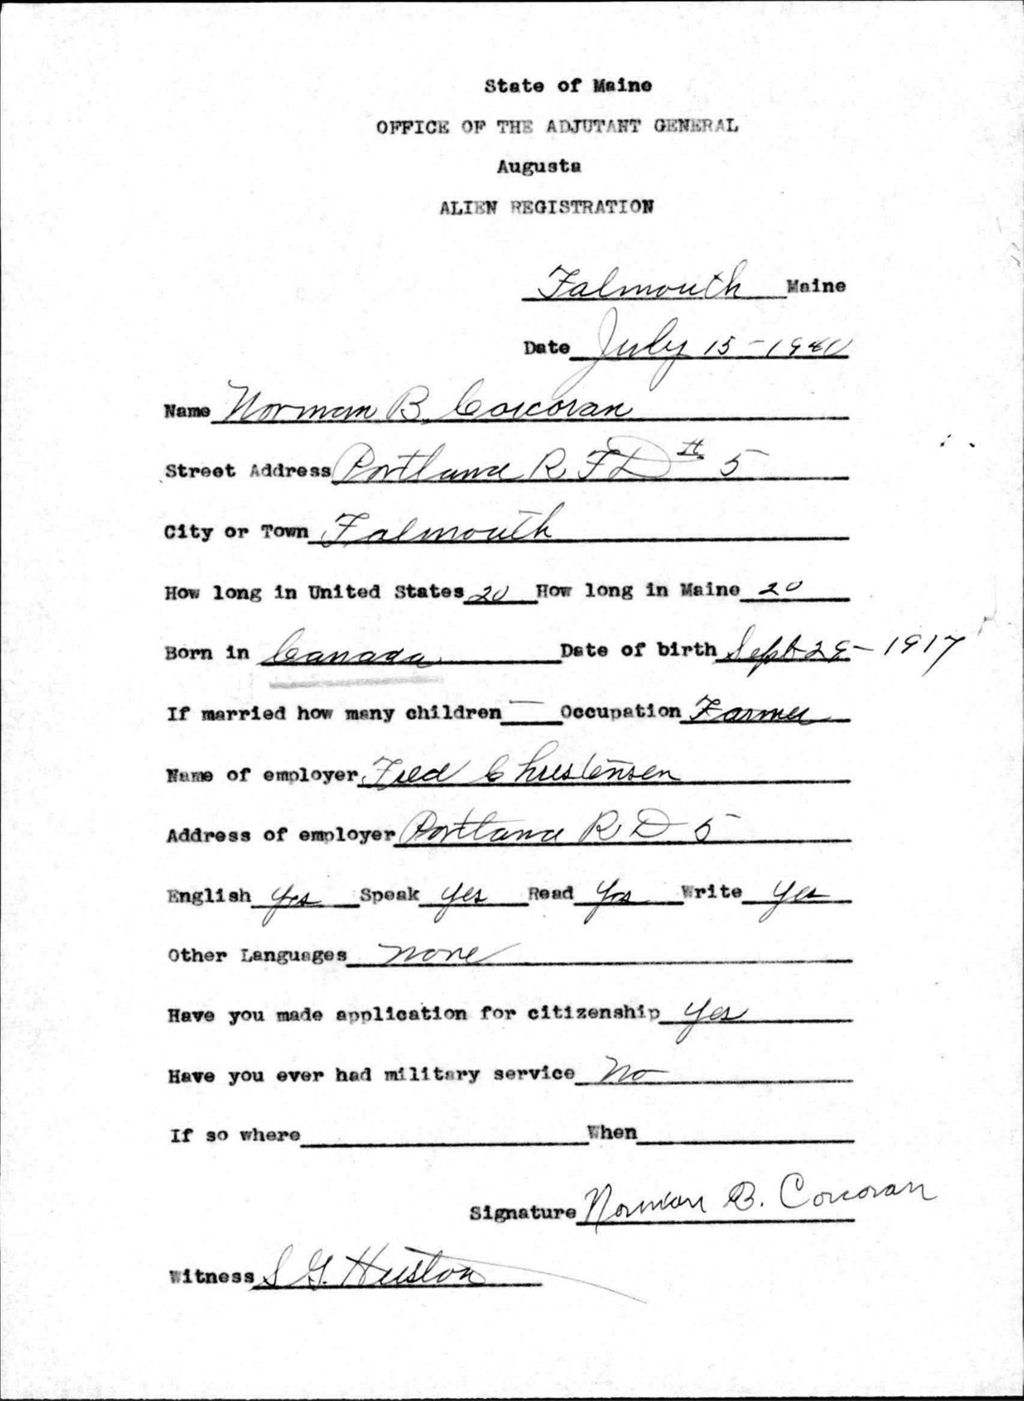 State of Maine
OFFICE OF THE ADJUTANT GENERAL
Augusta
ALIEN REGISTRATION
Falmouth Maine
Date July 15 - 1940
Name Norman B. Corcoran
Street Address Portland R F D # 5
City or Town Falmouth
How long in United States 20 How long in Maine 20
Born in Canada Date of birth Sept 29 - 1917
If married how many children — Occupation Farmer
Name of employer Fred Christensen
Address of employer Portland R D 5
English Yes Speak Yes Read Yes Write Yes
Other Languages none
Have you made application for citizenship Yes
Have you ever had military service No
If so where When
Signature Norman B. Corcoran
Witness S G. Huston